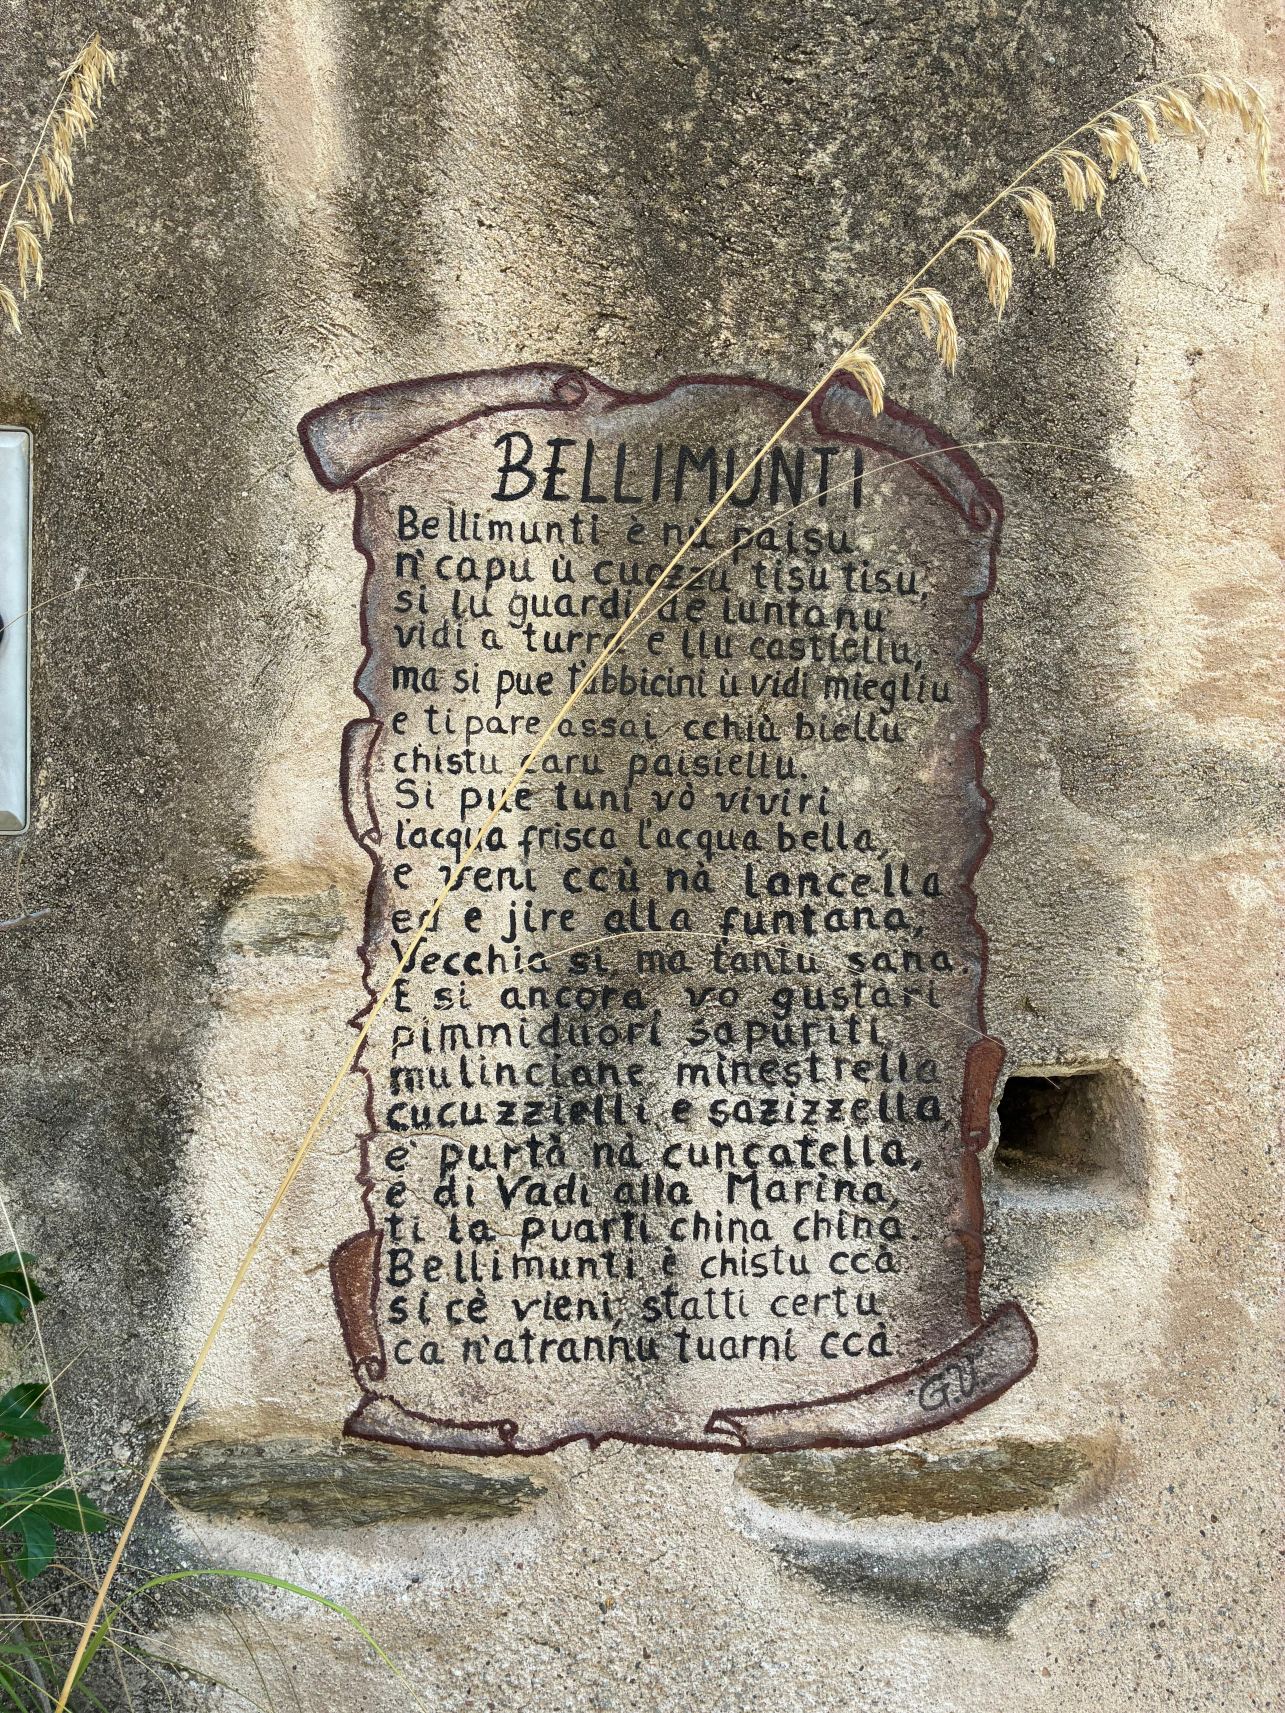 BELLIMUNTI
Bellimunti è nù paisu
n'capu ù cuozzu tisu tisu,
si lu guardi de luntanu
vidi a turra e llu castiellu,
ma si pue t'abbicini ù vidi miegliu
e ti pare assai cchiù biellu
chistu caru paisiellu.
Si pue tuni vò viviri
l'acqua frisca l'acqua bella,
e veni ccù nà lancella
ed e jire alla funtana,
Vecchia si, ma tantu sana.
E si ancora vo gustari
pimmiduori sapuriti,
mulinciane minestrella
cucuzzielli e sazizzella,
e' purtà nà cuncatella,
e di Vadi alla Marina,
ti la puarti china china.
Bellimunti è chistu ccà
si cè vieni, statti certu
ca n'atrannu tuarni ccà
G.V.